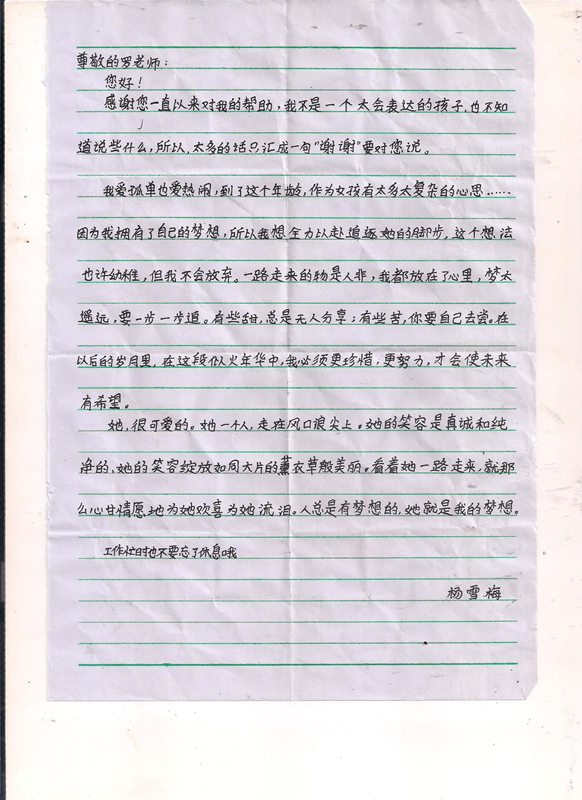 尊敬的罗老师：
您好！
感谢您一直以来对我的帮助，我不是一个太会表达的孩子，也不知
道说些什么，所以，太多的话只汇成一句“谢谢”要对您说。
我爱孤单也爱热闹，到了这个年龄，作为女孩有太多太复杂的心思……
因为我拥有了自己的梦想，所以我想全力以赴追逐她的脚步，这个想法
也许幼稚，但我不会放弃。一路走来的物是人非，我都放在了心里，梦太
遥远，要一步一步追。有些甜，总是无人分享；有些苦，你要自己去尝。在
以后的岁月里，在这段似火年华中，我必须更珍惜，更努力，才会使未来
有希望。
她，很可爱的。她一个人，走在风口浪尖上。她的笑容是真诚和纯
净的，她的笑容绽放如同大片的薰衣草般美丽。看着她一路走来，就那
么心甘情愿地为她欢喜为她流泪。人总是有梦想的，她就是我的梦想。
工作忙时也不要忘了休息哦
杨雪梅